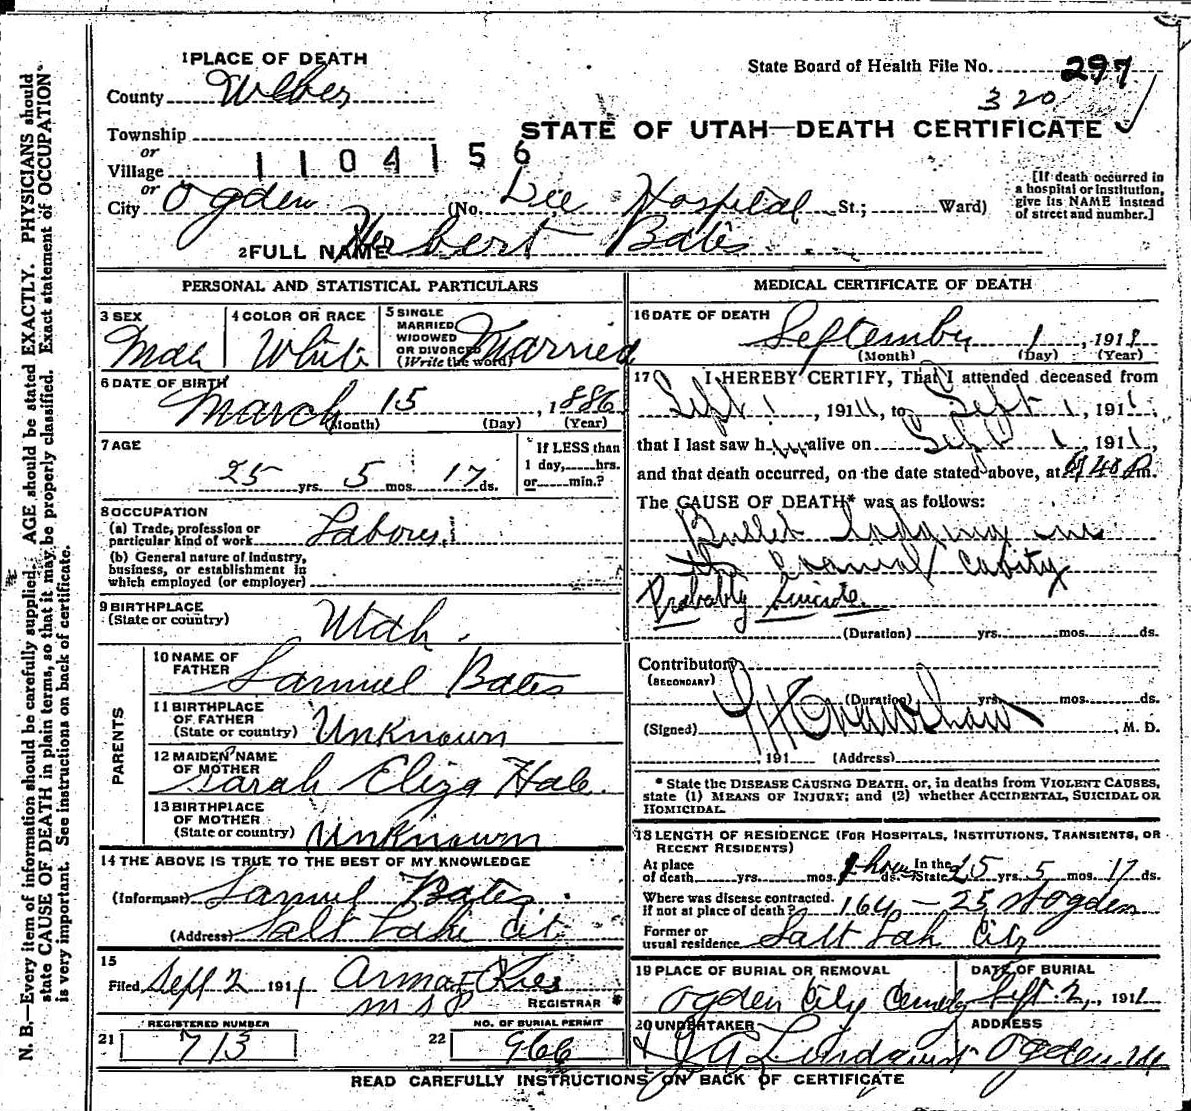 1 PLACE OF DEATH
State Board of Health File No. 297
County Weber
320
Township
STATE OF UTAH—DEATH CERTIFICATE
or
Village
1104156
or
City Ogden (No. Dee Hospital St.; Ward)
[If death occurred in
a hospital or institution,
give its NAME instead
of street and number.]
2 FULL NAME Herbert Bates
PERSONAL AND STATISTICAL PARTICULARS
3 SEX
Male
4 COLOR OR RACE
White
5 SINGLE
MARRIED
WIDOWED
OR DIVORCED
(Write the word)
Married
6 DATE OF BIRTH
March 15, 1886
(Month) (Day) (Year)
7 AGE
25 yrs. 5 mos. 17 ds.
If LESS than
1 day,......hrs.
or......min.?
8 OCCUPATION
(a) Trade, profession or
particular kind of work Laborer
(b) General nature of industry,
business, or establishment in
which employed (or employer)
9 BIRTHPLACE
(State or country)
Utah.
PARENTS
10 NAME OF
FATHER
Samuel Bates
11 BIRTHPLACE
OF FATHER
(State or country) Unknown
12 MAIDEN NAME
OF MOTHER
Sarah Eliza Hale
13 BIRTHPLACE
OF MOTHER
(State or country) Unknown
14 THE ABOVE IS TRUE TO THE BEST OF MY KNOWLEDGE
(Informant) Samuel Bates
(Address) Salt Lake Cit
15
Filed Sept 2 1911
REGISTRAR
REGISTERED NUMBER
21 713
NO. OF BURIAL PERMIT
22 966
MEDICAL CERTIFICATE OF DEATH
16 DATE OF DEATH
September 1, 1911
(Month) (Day) (Year)
17 I HEREBY CERTIFY, That I attended deceased from
Sept 1, 1911, to Sept 1, 1911,
that I last saw him alive on Sept 1, 1911,
and that death occurred, on the date stated above, at m.
The CAUSE OF DEATH* was as follows:
Bullet lodging in
the cranial cavity
Probably Suicide.
(Duration) yrs. mos. ds.
Contributory
(SECONDARY)
(Duration) yrs. mos. ds.
(Signed) , M. D.
191 (Address)
* State the DISEASE CAUSING DEATH, or, in deaths from VIOLENT CAUSES,
state (1) MEANS OF INJURY; and (2) whether ACCIDENTAL, SUICIDAL OR
HOMICIDAL.
18 LENGTH OF RESIDENCE (FOR HOSPITALS, INSTITUTIONS, TRANSIENTS, OR
RECENT RESIDENTS)
At place
of death yrs. mos. ds. In the State 25 yrs. 5 mos. 17 ds.
Where was disease contracted.
if not at place of death? 164 — 25 St Ogden
Former or
usual residence Salt Lak City
19 PLACE OF BURIAL OR REMOVAL
Ogden City Cemetery
DATE OF BURIAL
Sept. 2, 1911
20 UNDERTAKER
J A Lindquist
ADDRESS
Ogden
READ CAREFULLY INSTRUCTIONS ON BACK OF CERTIFICATE
N. B.—Every item of information should be carefully supplied. AGE should be stated EXACTLY. PHYSICIANS should
state CAUSE OF DEATH in plain terms, so that it may be properly classified. Exact statement of OCCUPATION
is very important. See instructions on back of certificate.